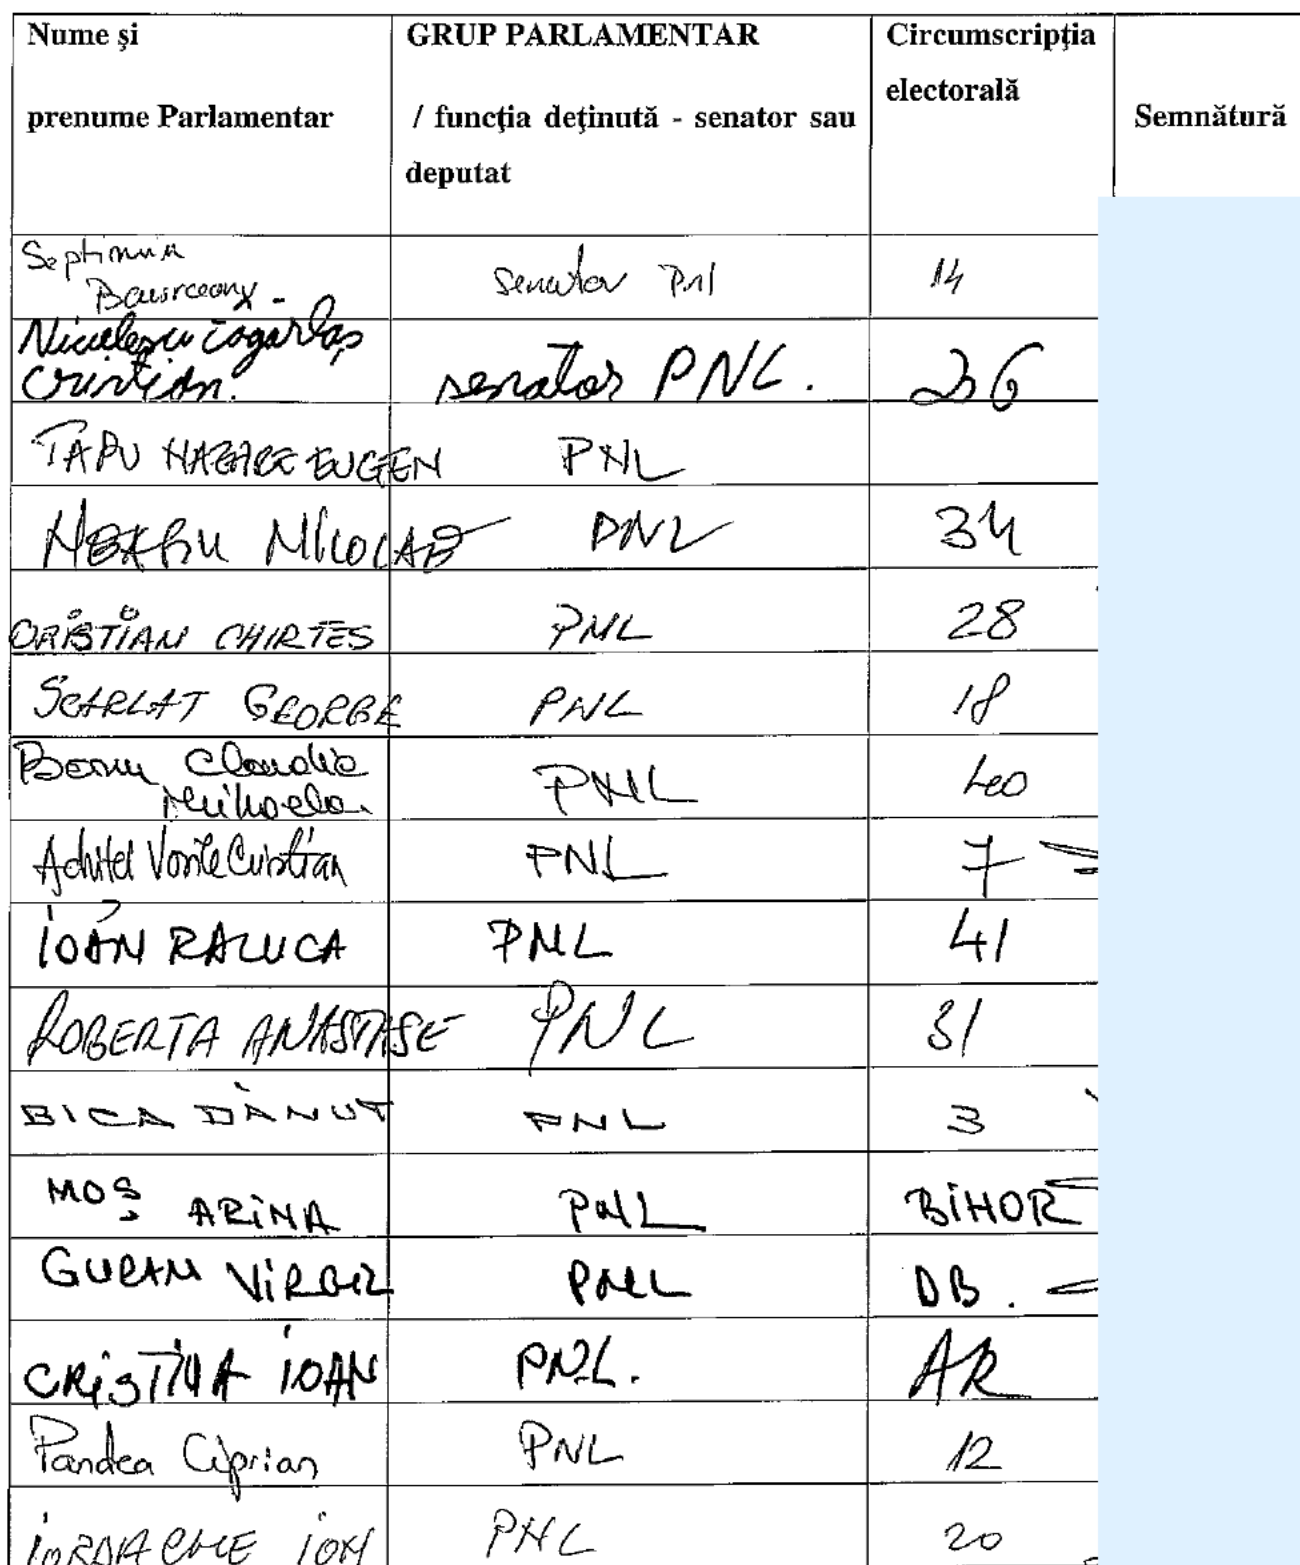 Nume şi
prenume Parlamentar
GRUP PARLAMENTAR
/ funcţia deţinută - senator sau
deputat
Circumscripţia
electorală
Semnătură
Septimiu
senator Pnl 14
Niculescu Țâgârlaș
Cristian. senator PNL. 36
TAPU NAZARE EUGEN PNL
NEAGU NICOLAE PNL 34
CRISTIAN CHIRTES PNL 28
SCARLAT GEORGE PNL 18
Claudia
Mihaela PNL 40
Achitei Vasile Cristian PNL 7
IOAN RALUCA PNL 41
ROBERTA ANASTASE PNL 31
BICA DĂNUT PNL 3
MOȘ ARINA PNL BIHOR
GURAN VIRGIL PNL DB.
CRISTINA IOAN PNL. AR
Pandea Ciprian PNL 12
IORDACHE ION PNL 20